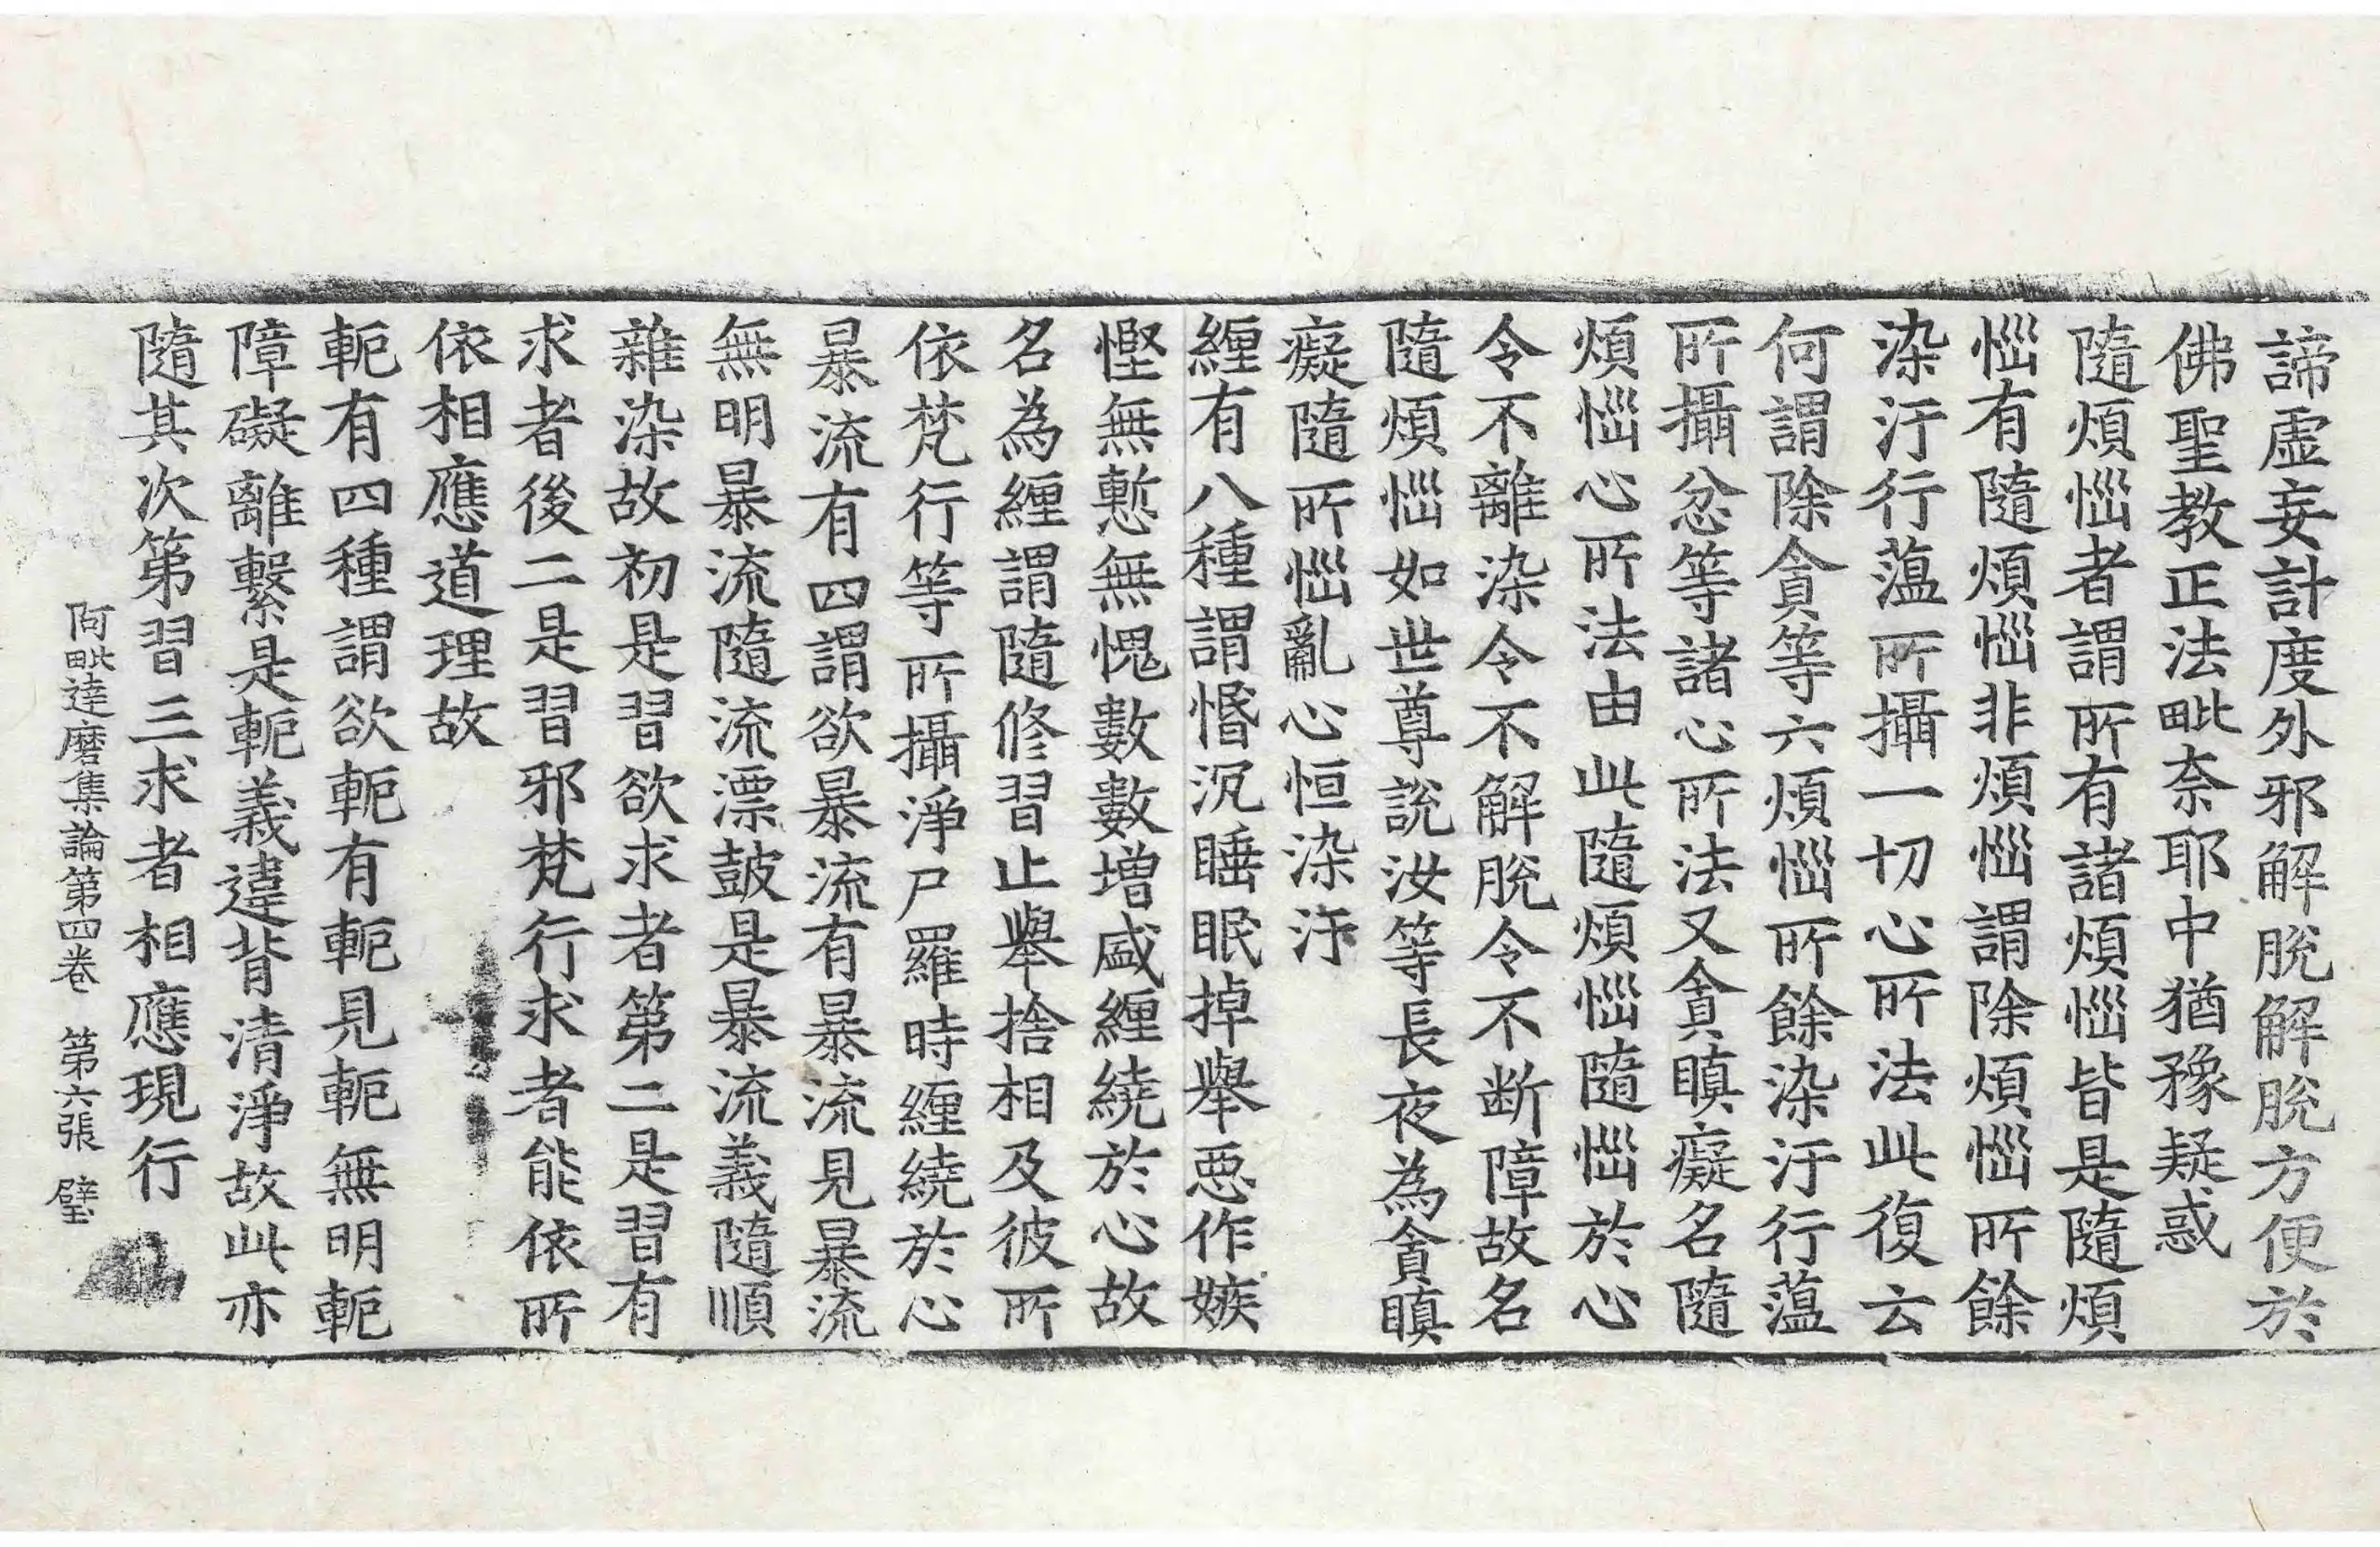 諦虛妄計度外邪解脫解脫方便於
佛聖教正法毗奈耶中猶豫疑惑
隨煩惱者謂所有諸煩惱皆是隨煩
惱有隨煩惱非煩惱謂除煩惱所餘
染汙行蘊所攝一切心所法此復云
何謂除貪等六煩惱所餘染汙行蘊
所攝忿等諸心所法又貪瞋癡名隨
煩惱心所法由此隨煩惱隨惱於心
令不離染令不解脫令不断障故名
隨煩惱如世尊說汝等長夜為貪瞋
癡隨所惱亂心恒染汙
纏有八種謂惛沉睡眠掉舉惡作嫉
慳無慙無愧數數增盛纏繞於心故
名為纏謂隨修習止舉捨相及彼所
依梵行等所攝淨尸羅時纏繞於心
暴流有四謂欲暴流有暴流見暴流
無明暴流隨流漂鼓是暴流義隨順
雜染故初是習欲求者第二是習有
求者後二是習邪梵行求者能依所
依相應道理故
軛有四種謂欲軛有軛見軛無明軛
障礙離繫是軛義違背清淨故此亦
隨其次第習三求者相應現行
阿毗達磨集論第四卷 第六張 璧